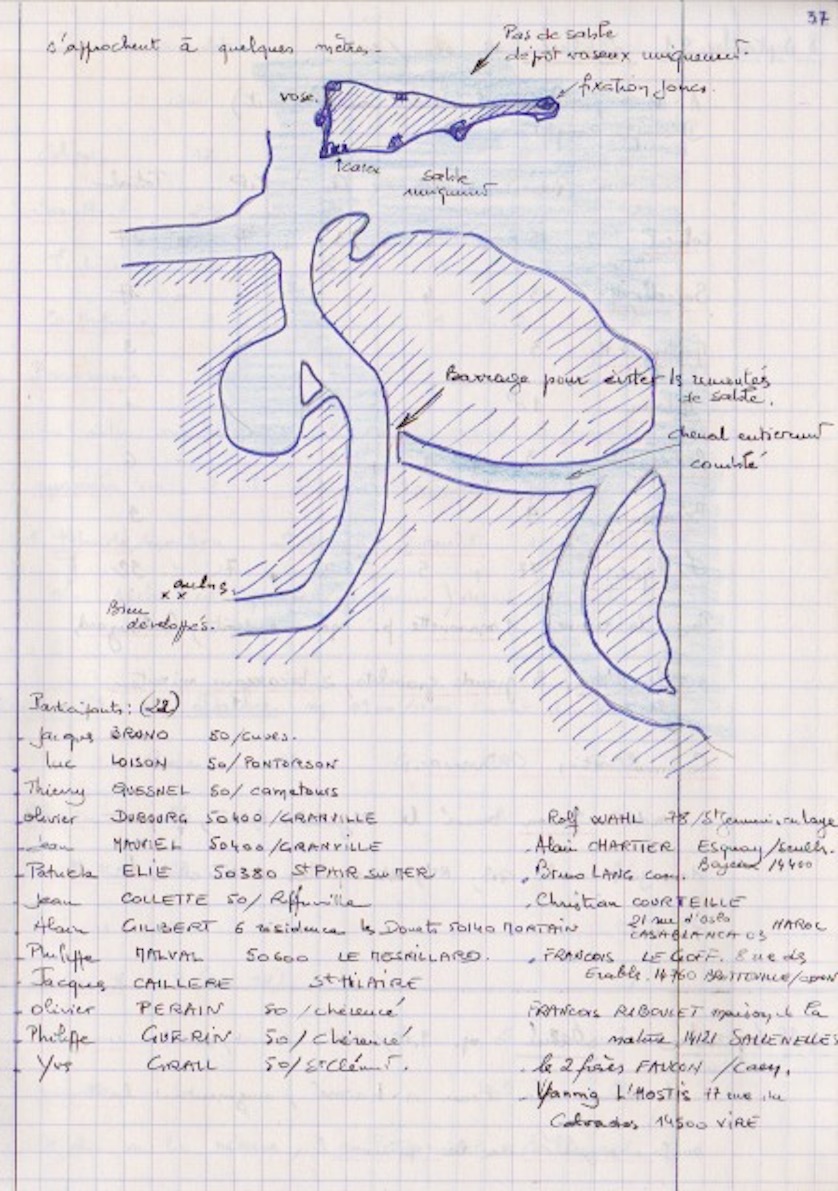 37
s'approchent à quelques mètres.
Pas de sable
dépôt vaseux uniquement.
vase.
fixation joncs.
sable
uniquement
Barrage pour éviter ls remontés
de sable.
chenal entièrement
comblé
Bien
développés.
Participants : (22)
Jacques BRONO 50/Cuves.
Luc LOISON 50/PONTORSON
Thierry QUESNEL 50/cametours
olivier DUBOURG 50400/GRANVILLE
Jean MAUVIEL 50400/GRANVILLE
Patricia ELIE 50380 St PAIR sur MER
Jean COLLETTE 50/
Alain GILIBERT 6 résidence ls Donets 50140 MORTAIN
Philippe MALVAL 50600 LE MESNILLARD.
Jacques CAILLERE St HILAIRE
olivier PERAIN 50/chérencé
Philippe GUERIN 50/Chérencé
Yvs GRALL 50/St Clément.
Rolf WAHL 78/St Germain en laye
Alain CHARTIER Esquay/seulls.
Bayeux 14400
Bruno LANG caen.
Christian COURTEILLE
21 rue d'Oslo
CASABLANCA 03 MAROC
FRANCOIS LE GOFF. 8 rue ds
Erabls. 14760 BRETTEVILLE/ODON
FRANCOIS RIBOULET maison de la
nature 14121 SALLENELLES
ls 2 frères FAUCON /Caen.
Yannig L'HOSTIS 17 rue du
Calvados 14500 VIRE